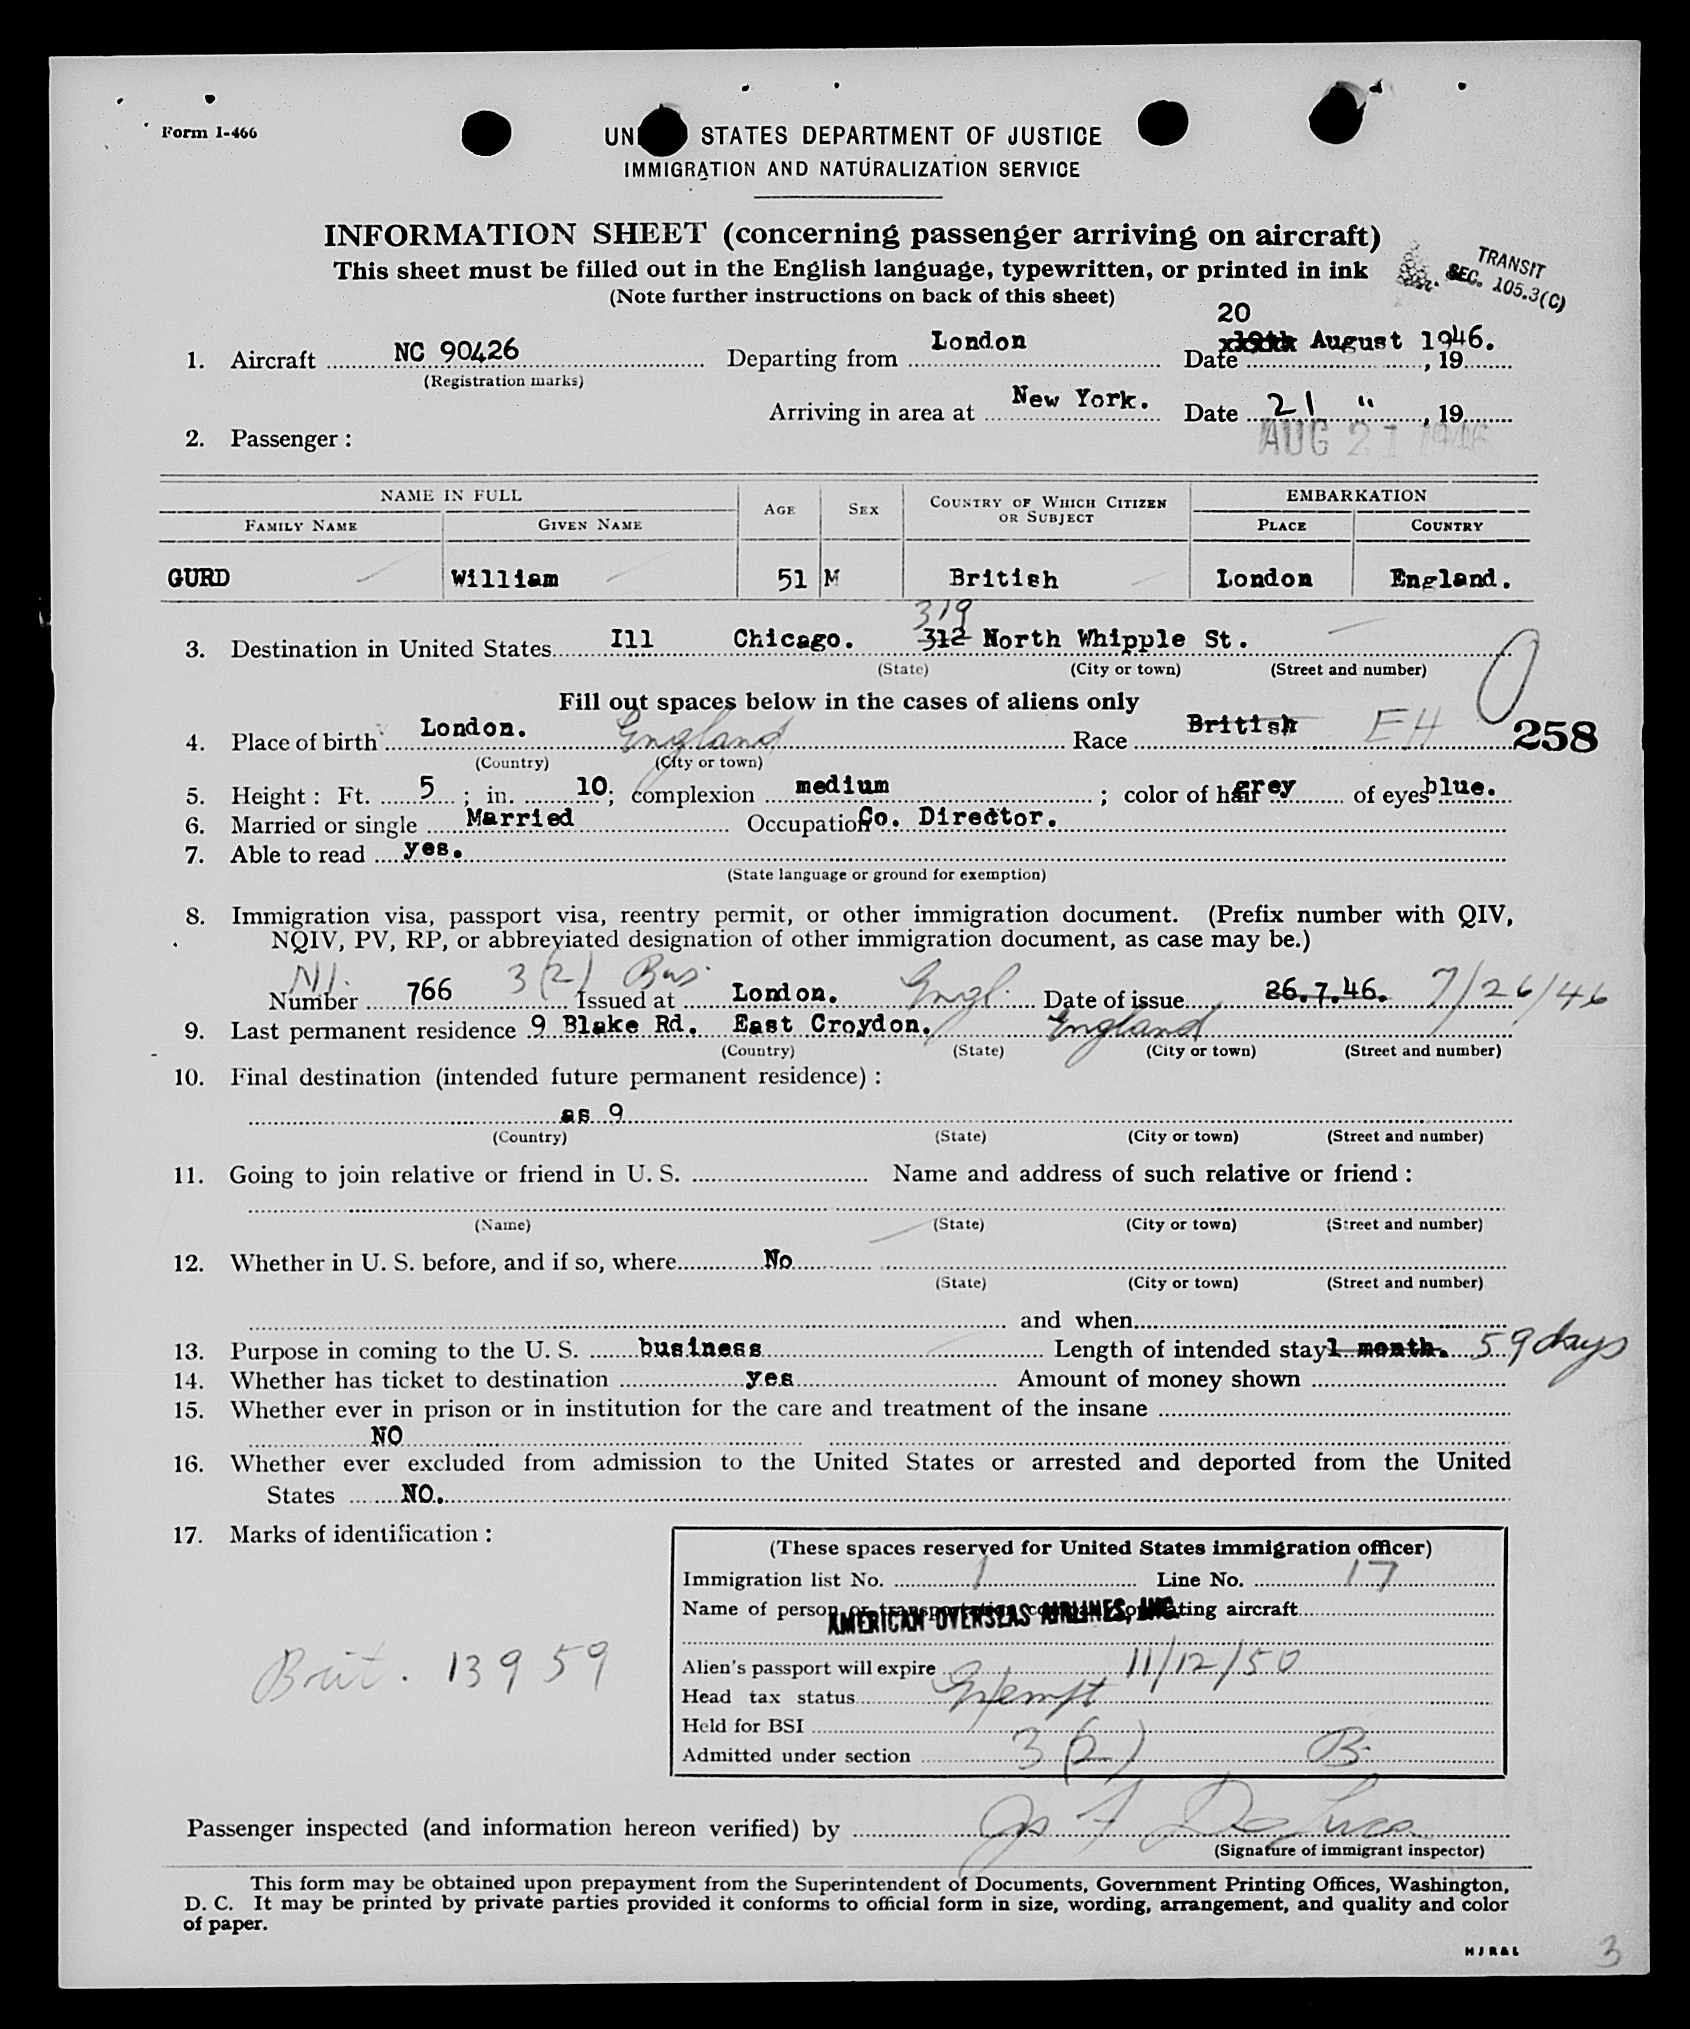 Form I-466
UN STATES DEPARTMENT OF JUSTICE
IMMIGRATION AND NATURALIZATION SERVICE
INFORMATION SHEET (concerning passenger arriving on aircraft)
This sheet must be filled out in the English language, typewritten, or printed in ink
(Note further instructions on back of this sheet)
TRANSIT
SEC. 105.3(C)
20
1. Aircraft NC 90426 Departing from London Date 19th August 1946. , 19
(Registration marks)
Arriving in area at New York. Date 21 " , 19
AUG 21 1946
2. Passenger :
NAME IN FULL AGE SEX COUNTRY OF WHICH CITIZEN OR SUBJECT EMBARKATION
FAMILY NAME GIVEN NAME PLACE COUNTRY
GURD William 51 M British London England.
319
3. Destination in United States Ill Chicago. 312 North Whipple St.
(State) (City or town) (Street and number)
Fill out spaces below in the cases of aliens only
4. Place of birth London. England Race British EH 258
(Country) (City or town)
5. Height : Ft. 5 ; in. 10 ; complexion medium ; color of hair grey of eyes blue.
6. Married or single Married Occupation Co. Director.
7. Able to read yes.
(State language or ground for exemption)
8. Immigration visa, passport visa, reentry permit, or other immigration document. (Prefix number with QIV,
NQIV, PV, RP, or abbreviated designation of other immigration document, as case may be.)
Number 766 3(2) Bus. Issued at London. Engl. Date of issue 26.7.46. 7/26/46
9. Last permanent residence 9 Blake Rd. East Croydon. England
(Country) (State) (City or town) (Street and number)
10. Final destination (intended future permanent residence) :
as 9
(Country) (State) (City or town) (Street and number)
11. Going to join relative or friend in U. S. Name and address of such relative or friend :
(Name) (State) (City or town) (Street and number)
12. Whether in U. S. before, and if so, where No
(State) (City or town) (Street and number)
and when
13. Purpose in coming to the U. S. business Length of intended stay 1 month. 59 days
14. Whether has ticket to destination yes Amount of money shown
15. Whether ever in prison or in institution for the care and treatment of the insane
NO
16. Whether ever excluded from admission to the United States or arrested and deported from the United
States NO.
17. Marks of identification :
Brit. 13959
(These spaces reserved for United States immigration officer)
Immigration list No. 1 Line No. 17
Name of person or transportation company operating aircraft
AMERICAN OVERSEAS AIRLINES, INC.
Alien's passport will expire 11/12/50
Head tax status Exempt
Held for BSI
Admitted under section 3(2) B.
Passenger inspected (and information hereon verified) by Js F DeLuca
(Signature of immigrant inspector)
This form may be obtained upon prepayment from the Superintendent of Documents, Government Printing Offices, Washington,
D. C. It may be printed by private parties provided it conforms to official form in size, wording, arrangement, and quality and color
of paper.
HJR&L
3